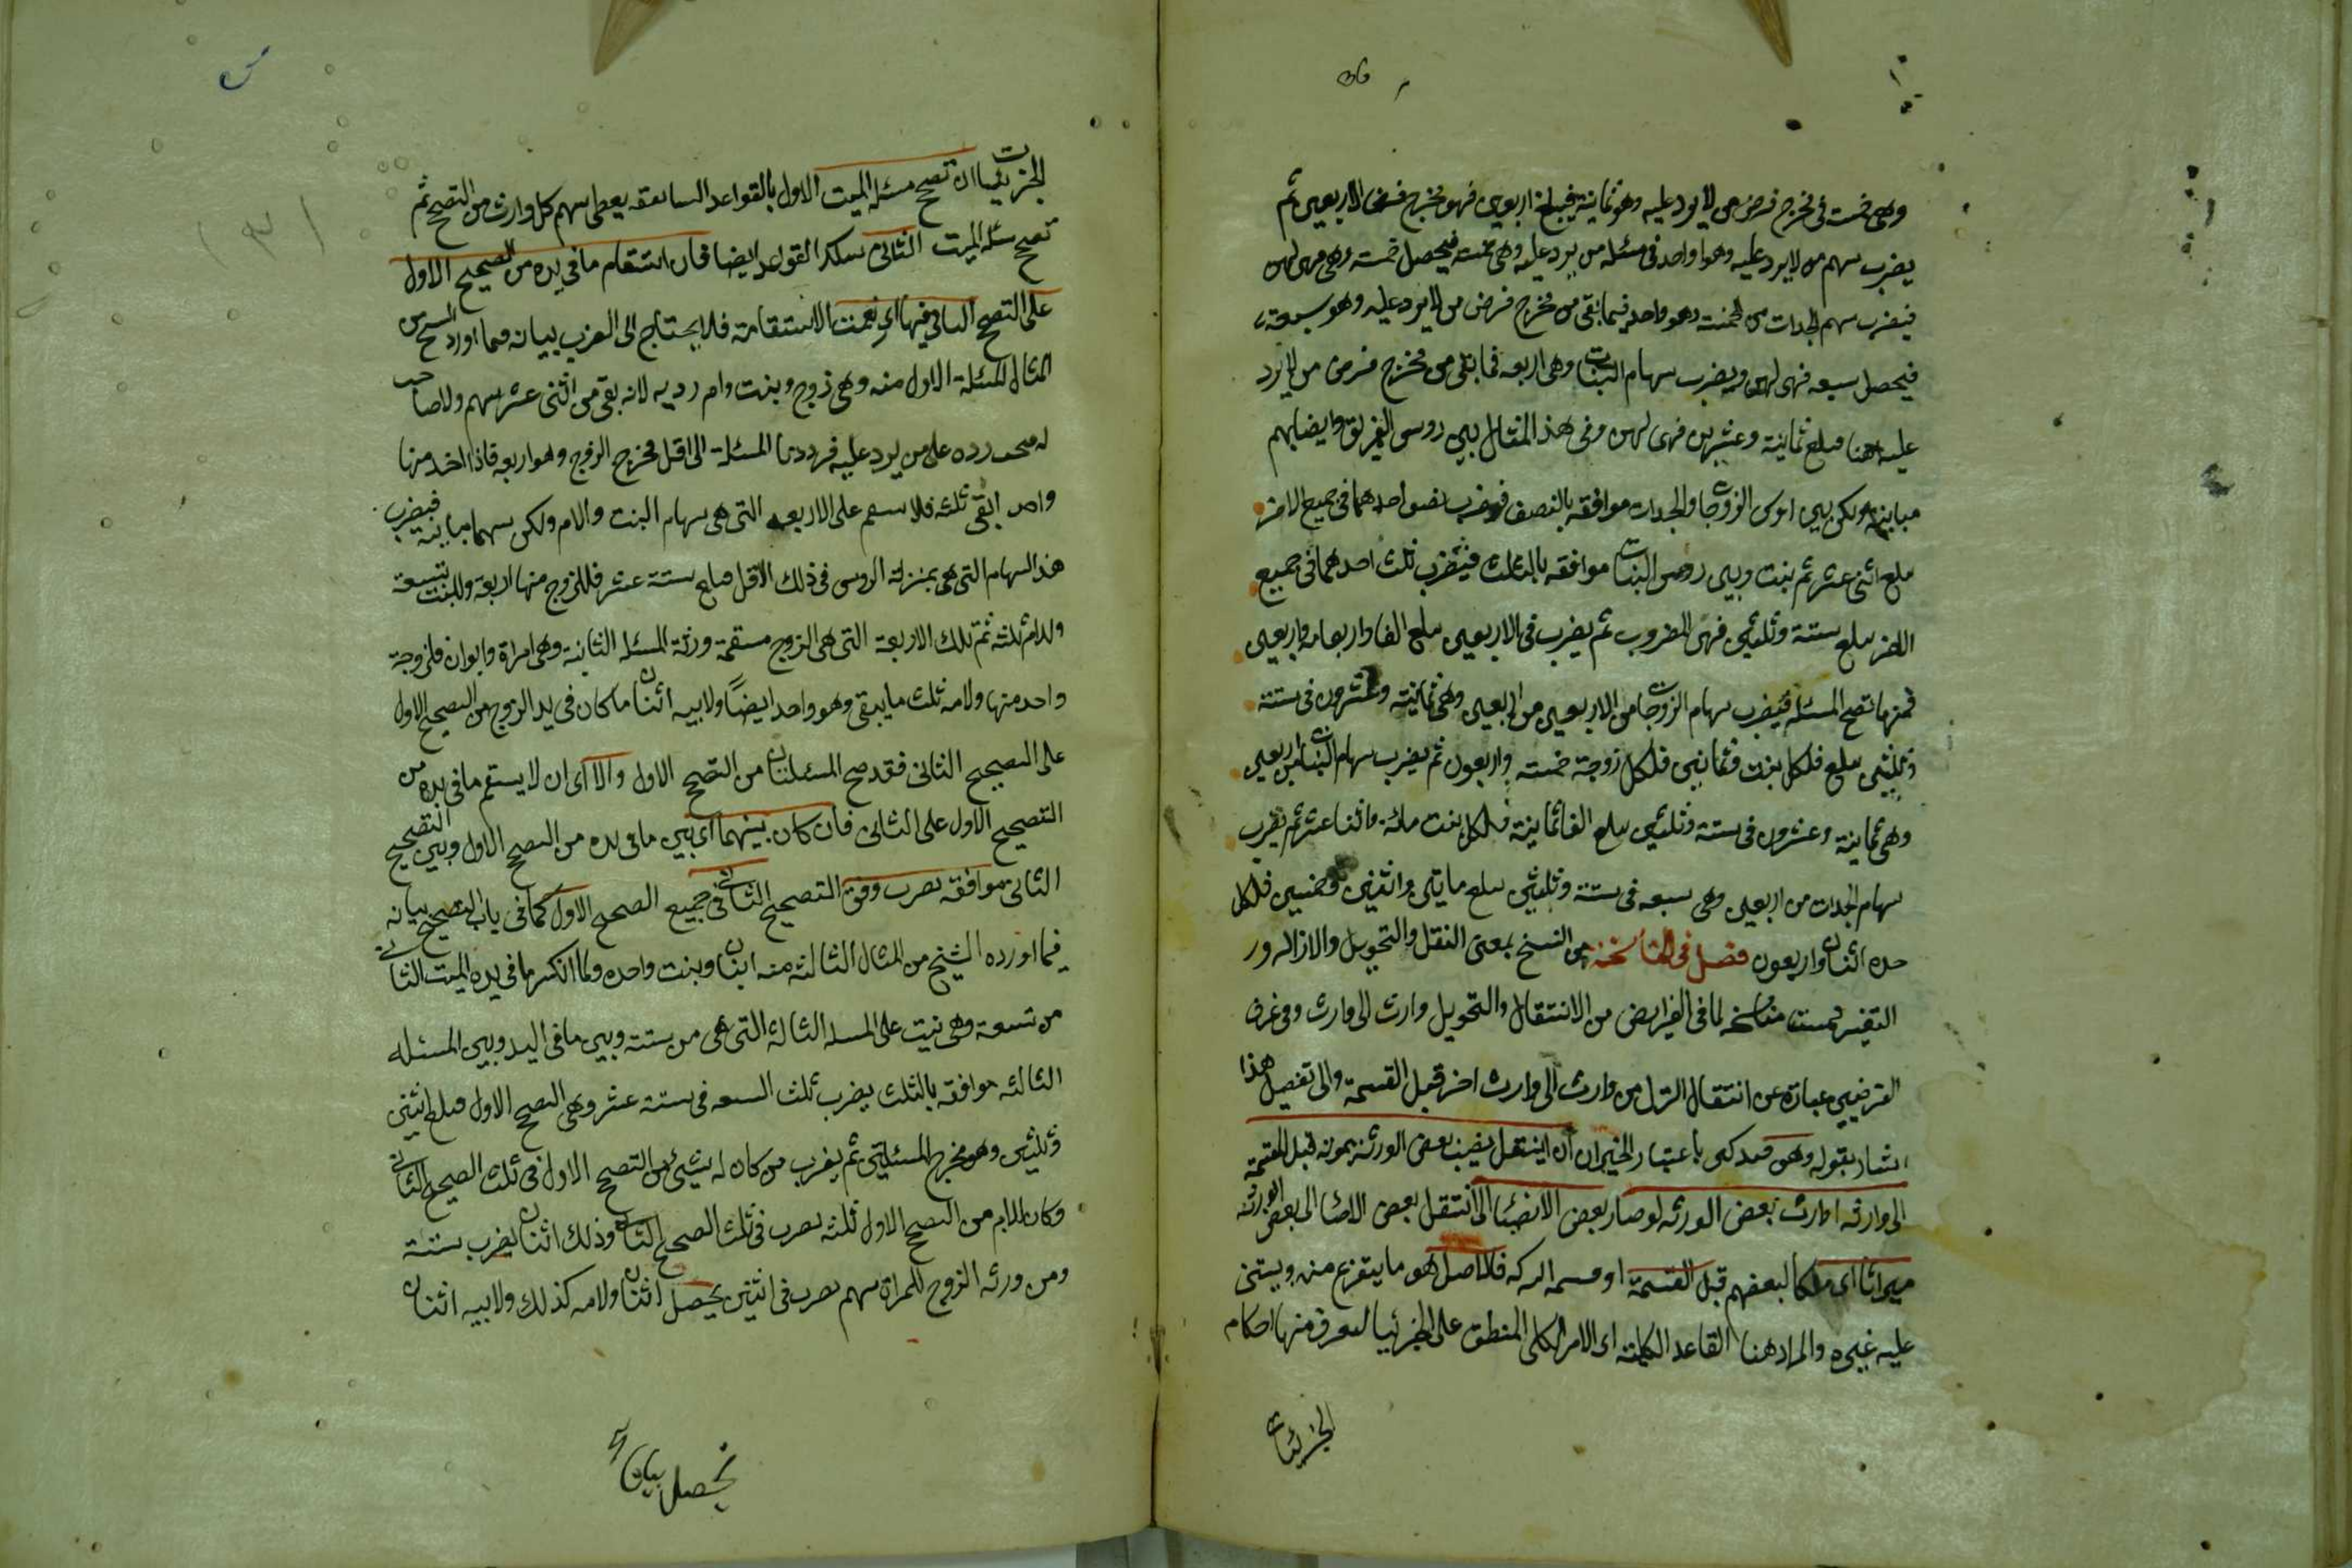 وهى خمسة فى مخرج فرض من لا يرد عليه وهو ثمانية فيبلغ اربعين فهو مخرج فرض الاربعين ثم
يضرب سهم من لا يرد عليه وهوا واحد فى مسئلة من يرد عليه وهى خمسة فيحصل خمسة وهى من لهن
فيضرب سهم الجدات من الخمسة وهو واحد فيما بقى من مخرج فرض من لا يرد عليه وهو سبعة
فيحصل سبعه فهى لهن ويضرب سهام البنات وهى اربعه فما بقى من مخرج فرض من لا يرد
عليه هنا مبلغ ثمانية وعشرين فهى لهن وفى هذا المثال بين روس الفريق وايضا بهم
مباينة ولكن بين روس الزوجات والجدات موافقه بالنصف فيضرب نصف احدهما فى جميع الاخر
مبلغ اثنى عشر ثم بنت وبين روس البنات موافقه بالثلث فيضرب ثلث احدهما فى جميع
الاخر مبلغ ستة وثلثين فهى المضروب ثم يضرب فى الاربعين مبلغ الفا واربعمايه واربعين
فمنها تصح المسئله فيضرب سهام الزوجات من الاربعين من اربعين وهى ثمانية وعشرون فى ستة
وثلثين مبلغ فلكل بنت وثمانين فلكل زوجة خمسة واربعون ثم يضرب سهام البنات من اربعين
وهى ثمانية وعشرون فى ستة وثلثين مبلغ الفا ثمانية فلكل بنت مائة واثنا عشر ثم يضرب
سهام الجدات من اربعين وهى سبعه فى ستة وثلثين مبلغ مايتى واثنين وخمسين فلكل
حده اثنان واربعون فصل فى المناسخة من النسخ بمعنى النقل والتحويل والازاله ور
التغيير وسميت مناسخه لما فى الفرايض من الانتقال والتحويل وارث الى وارث وفى عرف
الفرضيين عبارة عن انتقال التركة من وارث الى وارث اخر قبل القسمة والى تفصيل هذا
اشار بقوله وهو مذكر باعتبار الخبر ان ان ينتقل نصيب بعض الورثة بموته قبل القسمة
الى وارثه اى ارث بعض الورثه لو صار بعض الانصباء اى انتقل بعض الانصباء الى بعض الورثه
ميراثا اى ملكا لبعضهم قبل القسمة او قسمه التركه فالاصل هو ما يتفرع منه ويبتنى
عليه غيره والمراد هنا القاعد الكليته اى الامر الكلى المنطبق على الجزئيات ليعرف منها احكام
الجزئيات
الجزئيات ان تصح مسئله الميت الاول بالقواعد السابقه يعطى سهم كل وارث من التصحيح ثم
تصح مسئله الميت الثانى بتلك القواعد ايضا فان استقام ما فى يده من التصحيح الاول
على التصحيح الثانى فيها اى نعمت الاستقامة فلا يحتاج الى الضرب بيانه فيما اورد الشيخ من
المثال المسئلة الاول منه وهى زوج وبنت وام رديه لانه بقى من اثنى عشر سهم ولا صاحب
له يجب رده على من يرد عليه فرددنا المسئلة الى اقل مخرج الزوج وهو اربعه فاذا اخذ منها
واحد ابقى ثلثه فلا يستقيم على الاربعه التى هى سهام البنت والام ولكن بينهما مباينة فيضرب
هذ السهام التى هى بمنزلة الروس فى ذلك الاقل مبلغ ستة عشر فللزوج منها اربعة وللبنت تسعة
وللام ثلثه ثم تلك الاربعة التى هى الزوج مستقيمة ورثة المسئله الثانية وهى امراة وابوان فللزوجة
واحد منها ولامه ثلث ما يبقى وهو واحد ايضاً ولابيه اثنان ما كان فى يد الزوج من التصحيح الاول
على التصحيح الثانى فقد صح المسئلتان من التصحيح الاول والا اى ان لا يستقم ما فى يده من
التصحيح الاول على الثانى فان كان بينهما اى بين ما فى يده من التصحيح الاول وبين التصحيح
الثانى موافقه يضرب وفق التصحيح الثانى فى جميع التصحيح الاول كما فى باب التصحيح بيانه
فيما اورده الشيخ من المثال الثالثه منه ابنان وبنت واحده ولما انكسر ما فى يده الميت الثانى
من تسعة وهى بنت على المسئله الثالثة التى هى من ستة وبين ما فى اليد وبين المسئله
الثالثه موافقه بالثلث يضرب ثلث التسعه فى ستة عشر وهى التصحيح الاول مبلغ اثنين
وثلثين وهو مخرج المسئلتين ثم يضرب من كان له شيئ من التصحيح الاول فى ثلث التصحيح الثانى
وكان للام من التصحيح الاول ثلثه يضرب فى ثلث التصحيح الثانى وذلك اثنان يضرب بستة
ومن ورثه الزوج للمراة سهم يضرب فى اثنين يحصل اثنان ولامه كذلك ولابيه اثنان
يحصل بيانه